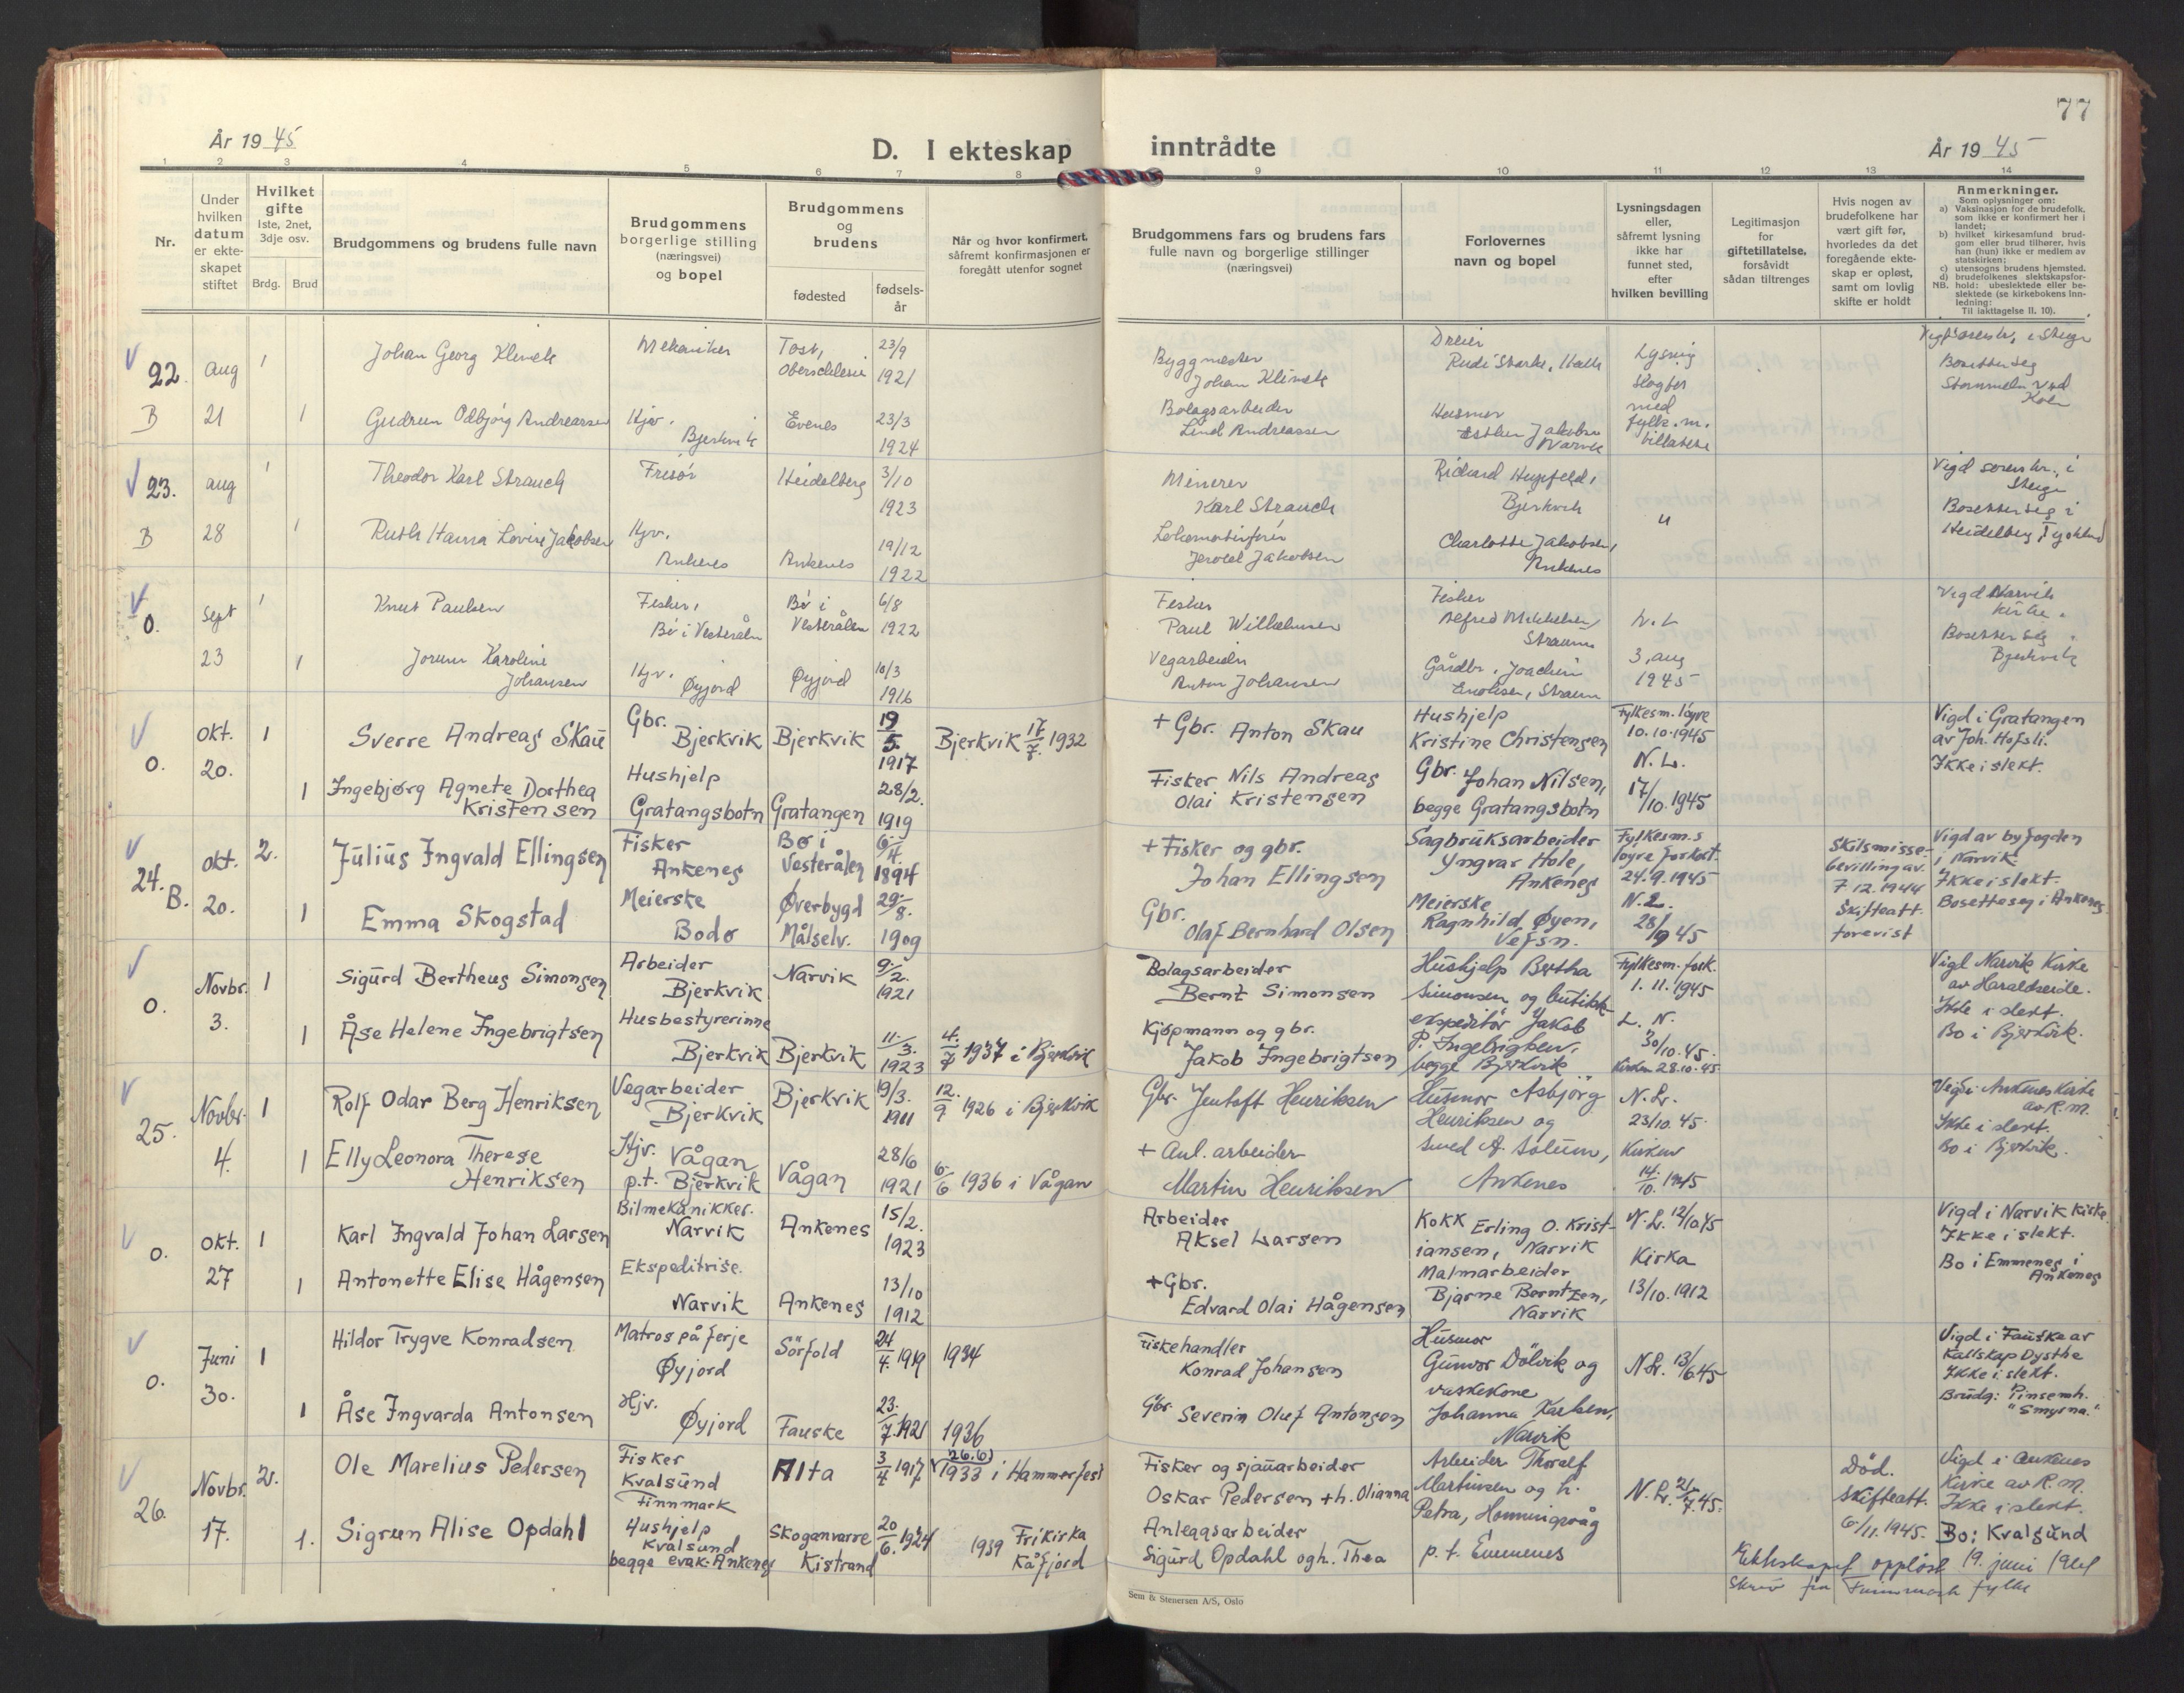 77
År 1945
D. I ekteskap inntrådte
År 1945
1 2 3 4 5 6 7 8 9 10 11 12 13 14
Nr.
Under hvilken datum er ekteskapet stiftet
Hvilket gifte
1ste, 2net, 3dje osv.
Brdg. Brud
Brudgommens og brudens fulle navn
Brudgommens borgerlige stilling (næringsvei) og bopel
Brudgommens og brudens
fødested
fødselsår
Når og hvor konfirmert, såfremt konfirmasjonen er foregått utenfor sognet
Brudgommens fars og brudens fars fulle navn og borgerlige stillinger (næringsvei)
Forlovernes navn og bopel
Lysningsdagen eller, såfremt lysning ikke har funnet sted, efter hvilken bevilling
Legitimasjon for giftetillatelse, forsåvidt sådan tiltrenges
Hvis nogen av brudefolkene har vært gift før, hvorledes da det foregående ekteskap er opløst, samt om lovlig skifte er holdt
Anmerkninger.
Som oplysninger om:
a) Vaksinasjon for de brudefolk. som ikke er konfirmert her i landet;
b) hvilket kirkesamfund brudgom eller brud tilhører, hvis han (hun) ikke er medlem av statskirken;
c) utensogns brudens hjemsted.
d) brudefolkenes slektskapsforhold: ubeslektede eller beslektede (se kirkebokens innledning:
NB.
Til iakttagelse II. 10).
22. B
Aug 21
1
Johan Georg Klimek
Mekaniker
Tost, Oberschlesie
23/9 1921
Byggmester
Johan Klimek
Dreier
Rudi Starke,
Lysning
med
fylk.m.
tillatelse
Bosetter seg
1
Gudrun Odbjørg Andreassen
Hjv. Bjerkvik
Evenes
23/3 1924
Bolagsarbeider
Andreassen
Husmor
Esther Jakobsen
Narvik
23. B
Aug 28
1
Theodor Karl Strauch
Frisør
Heidelberg
3/10 1923
Minerer
Karl Strauch
Richard Hupfeld,
Bjerkvik
"
Vigd sorenskr., i
Steige
Bosetter seg i
Heidelberg, Tyskland
1
Ruth Hanna Lovise Jakobsen
Hjv. Ankenes
Ankenes
19/12 1922
Lokomotivfører
Jakobsen
Charlotte Jakobsen,
Ankenes
0.
Sept 23
1
Knut Paulsen
Fisker,
Bø i Vesterålen
Bø i Vesterålen
6/8 1922
Fisker
Paul Wilhelmsen
Fisker
Alfred Mikkelsen
Straum
N. L
3. aug
1945
Vigd Narvik
kirke.
Bosetter seg
Bjerkvik
1
Jorunn Karoline
Johansen
Hjv. Øyjord
Øyjord
10/3 1916
Vegarbeider
Anton Johansen
Gårdbr. Joachim
Enoksen, Straum
0.
Okt. 20.
1
Sverre Andreas Skau
Gbr. Bjerkvik
Bjerkvik
19/5. 1917
Bjerkvik 17/7. 1932
+ Gbr. Anton Skau
Hushjelp
Kristine Christensen
Fylkesm. løyve
10.10.1945
N. L.
17/10.1945
Vigd i Gratangen
av Joh. Hofsli.
Ikke i slekt.
1
Ingebjørg Agnete Dorthea
Kristensen
Hushjelp
Gratangsbotn
Gratangen
28/2. 1919
Fisker Nils Andreas
Olai Kristensen
Gbr. Johan Nilsen,
begge Gratangsbotn
24. B.
Okt. 20.
2.
Julius Ingvald Ellingsen
Fisker
Ankenes
Bø i Vesterålen
6/4. 1894
+ Fisker og gbr.
Johan Ellingsen
Sagbruksarbeider
Yngvar Hole,
Ankenes
Fylkesm.s
løyve forkort.
24.9.1945
N. L.
28/9 45
Skilsmisse-
bevilling av
7 12.1944
Skifteatt.
forevist
Vigd av byfogden
i Narvik
Ikke i slekt.
Bosette seg i Ankenes
1
Emma Skogstad
Meierske
Bodø
Øverbygd
Målselv.
29/8. 1909
Gbr.
Olaf Bernhard Olsen
Meierske
Ragnhild Øyen,
Vefsn.
0.
Novbr. 3.
1
Sigurd Bertheus Simonsen
Arbeider
Bjerkvik
Narvik
9/2. 1921
Bolagsarbeider
Bernt Simonsen
Hushjelp Bertha
Simonsen og butikk-
ekspeditør Jakob
P. Ingebrigtsen,
begge Bjerkvik
Fylkesm. fork.
1. 11. 1945
L. N.
30/10.45.
Kirken 28.10.45
Vigd Narvik Kirke
av Haraldseide.
Ikke i slekt.
Bo i Bjerkvik.
1
Åse Helene Ingebrigtsen
Husbestyrerinne
Bjerkvik
Bjerkvik
11/3. 1923
4./7 1937 i Bjerkvik
Kjøpmann og gbr.
Jakob Ingebrigtsen
25.
Novbr. 4.
1
Rolf Odar Berg Henriksen
Vegarbeider
Bjerkvik
Bjerkvik
19/3. 1911
12./9 1926 i Bjerkvik
Gbr. Jentoft Henriksen
Husmor Asbjörg
Henriksen og
smed A. Solum,
Ankenes
N. L.
23/10.45.
Kirken
14./10. 1945
Vigd i Ankenes Kirke
av R.M.
Ikke i slekt.
Bo i Bjerkvik.
1
Elly Leonora Therese
Henriksen
Hjv. Vågan
p.t. Bjerkvik
Vågan
28/6 1921
6./6 1936 i Vågan
+ Anl. arbeider
Martin Henriksen
0.
Okt. 27
1
Karl Ingvald Johan Larsen
Bilmekanikker.
Narvik
Ankenes
15/2. 1923
Arbeider
Aksel Larsen
Kokk Erling O. Krist-
iansen, Narvik
N. L. 12/10 45
Kirka
13/10.1912
Vigd i Narvik kirke.
Ikke i slekt.
Bo i Emmenes i
Ankenes
1
Antonette Elise Hågensen
Ekspeditrise.
Narvik
Ankenes
13/10 1912
+ Gbr.
Edvard Olai Hågensen
Malmarbeider
Bjarne Berntzen,
Narvik
0.
Juni 30.
1
Hildor Trygve Konradsen
Matros på ferje
Øyjord
Sörfold
24/4. 1919
1934
Fiskehandler
Konrad Johansen
Husmor
Gunvor Dölvik og
vaskekone
Johanna Karlsen,
Narvik
N. L. 13/6 45
Vigd i Fauske av
Kallskap Dysthe
Ikke i slekt.
Brudg: Pinsemh.
"Smyrna."
1
Åse Ingvarda Antonsen
Hjv. Øyjord
Fauske
23./7. 1921
1936
Gbr. Severin Oluf Antonsen
26.
Novbr. 17.
2.
Ole Marelius Pedersen
Fisker
Kvalsund
Finnmark
Alta
3/4 1917
(26.6) 1933 i Hammerfest
Fisker og sjauarbeider
Oskar Pedersen + h. Olianna
Arbeider Thoralf
Martinsen og h.
Petra, Honningsvåg
p. t. Emmenes
N. L. 21/7.45.
Död.
Skifteatt.
6/11.1945.
Vigd i Ankenes
Kirke av R.M.
Ikke i slekt.
Bo: Kvalsund
1.
Sigrun Alise Opdahl
Hushjelp
Kvalsund
begge evak. Ankenes
Skoganvarre
Kistrand
20/6. 1924
1939 Frikirka
Kåfjord
Anleggsarbeider
Sigurd Opdahl og h. Thea
Ekteskapet oppløst 19. juni
Skriv fra Finnmark fylke
Sem & Stenersen A/S, Oslo